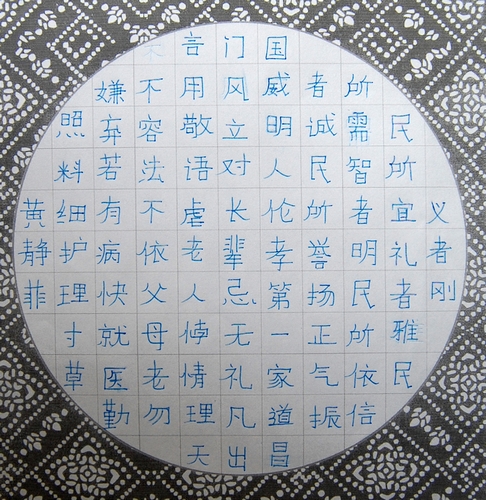 义者刚
民所宜礼者雅民
所需智者明民所依信
者诚民所誉扬正气振
国威明人伦孝第一家道昌
门风立对长辈忌无礼凡出
音用敬语虐老人悖情理天
不容法不依父母老勿
嫌弃若有病快就医勤
照料细护理寸草
黄静菲